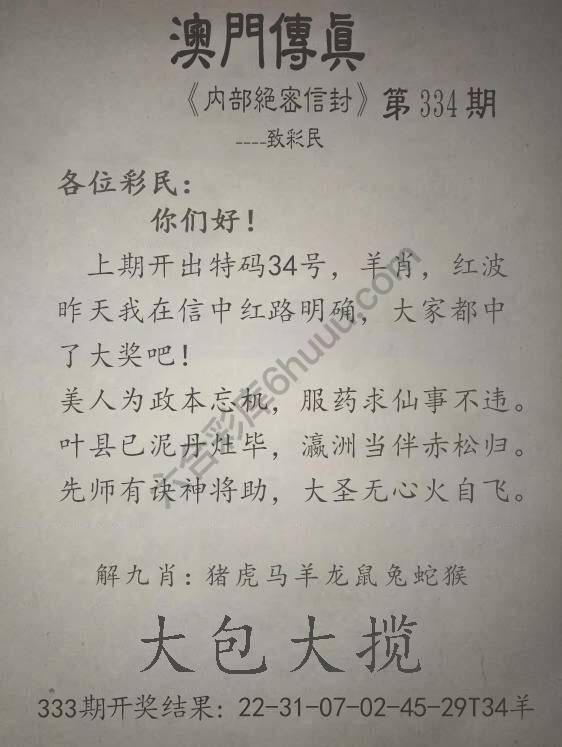 澳門傳眞
《内部絕密信封》第334期
----致彩民
各位彩民：
你们好！
上期开出特码34号，羊肖，红波
昨天我在信中红路明确，大家都中
了大奖吧！
美人为政本忘机，服药求仙事不违。
叶县已泥丹灶毕，瀛洲当伴赤松归。
先师有诀神将助，大圣无心火自飞。
解九肖：猪虎马羊龙鼠兔蛇猴
大包大揽
333期开奖结果：22-31-07-02-45-29T34羊
六合彩库6huuu.com